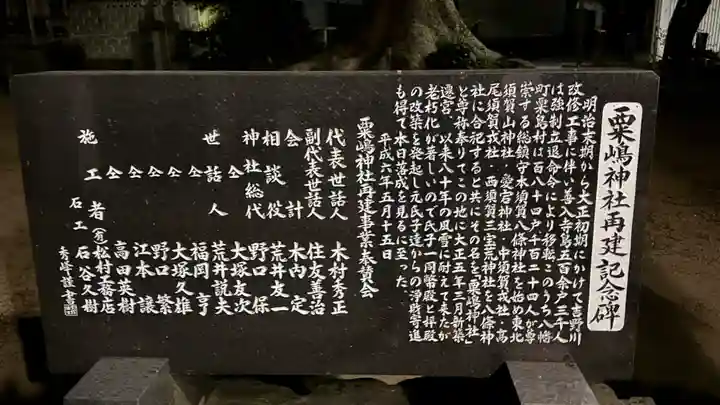 粟嶋神社再建記念碑
明治末期から大正初期にかけて吉野川
改修工事に伴い善入寺島五百余戸三千人
は強制立退命令により移転このうち八幡
町粟島村は百八十四戸千百二十四人が尊
崇する総鎮守本須賀八條神社を始め東北
須賀山神社・愛宕神社・中須賀戎社・高
尾須賀戎社・西須賀三宝荒神社を八條神
社に合祀すると共にその名を「粟嶋神社」
と尊称奉りてこの地に大正五年三月新築
遷宮、以来八十年の風雪に耐えて来たが
老朽化が著しいので氏子一同幣殿と拝殿
の改築を発起し元氏子達からの浄財寄進
も得て本日落成を見るに至った
平成六年五月十五日
粟嶋神社再建事業奉賛会
代表世話人 木村秀正
副代表世話人 住友善治
会計 木内定
相談役 荒井友一
神社総代 野口保
仝 大塚友次
仝 荒井説夫
世話人 福岡亨
仝 大塚久雄
仝 野口繁
仝 江本譲
仝 高田英樹
施工者 (有)松村工務店
石工 石谷久樹
秀峰謹書